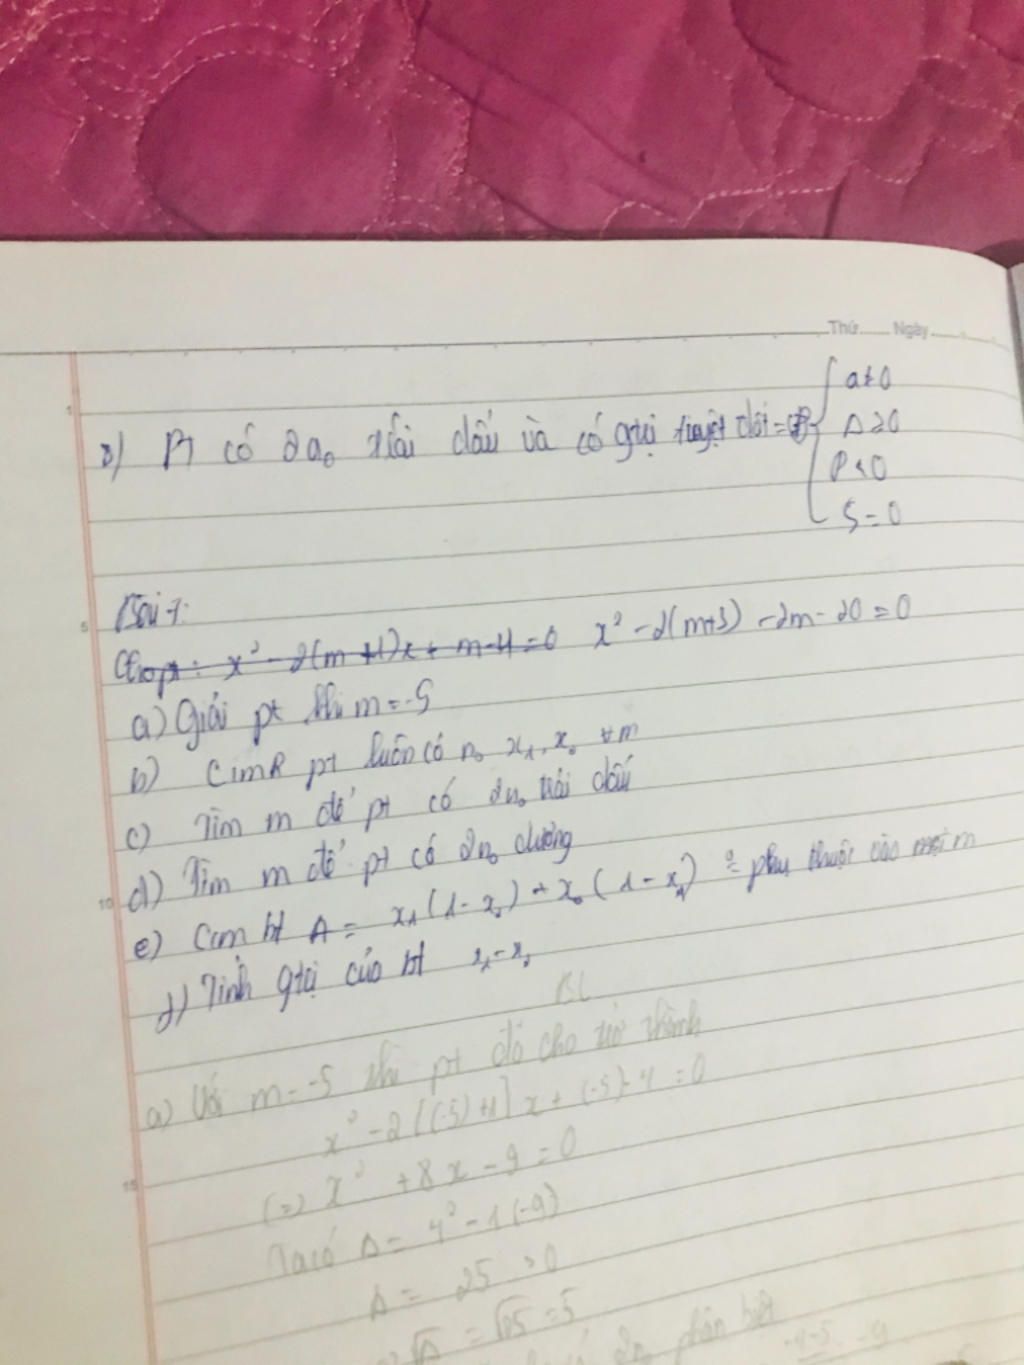 Thứ Ngày
3) Pt có 2n₀ trái dấu và có gtrị tuyệt đối = (=) { a≠0
Δ≥0
P<0
S=0
Bài 1:
Cho pt: x² - 2(m+1)x + m-4=0 x² - 2(m+3) - 2m - 20 = 0
a) Giải pt khi m=-5
b) CmR pt luôn có n₀ x₁, x₂ ∀m
c) Tìm m để pt có 2n₀ trái dấu
d) Tìm m để pt có 2n₀ dương
e) Cm bt A = x₁(1-x₂) + x₂(1-x₁) phụ thuộc vào m
f) Tính gtrị của bt x₁-x₂
BL
a) Với m=-5 thì pt đã cho trở thành
x² - 2[(-5)+1]x + (-5)-4 = 0
(=) x² + 8x - 9 = 0
Ta có Δ = 4² - 1(-9)
Δ = 25 >0
√Δ = √25 = 5
2n₀ phân biệt